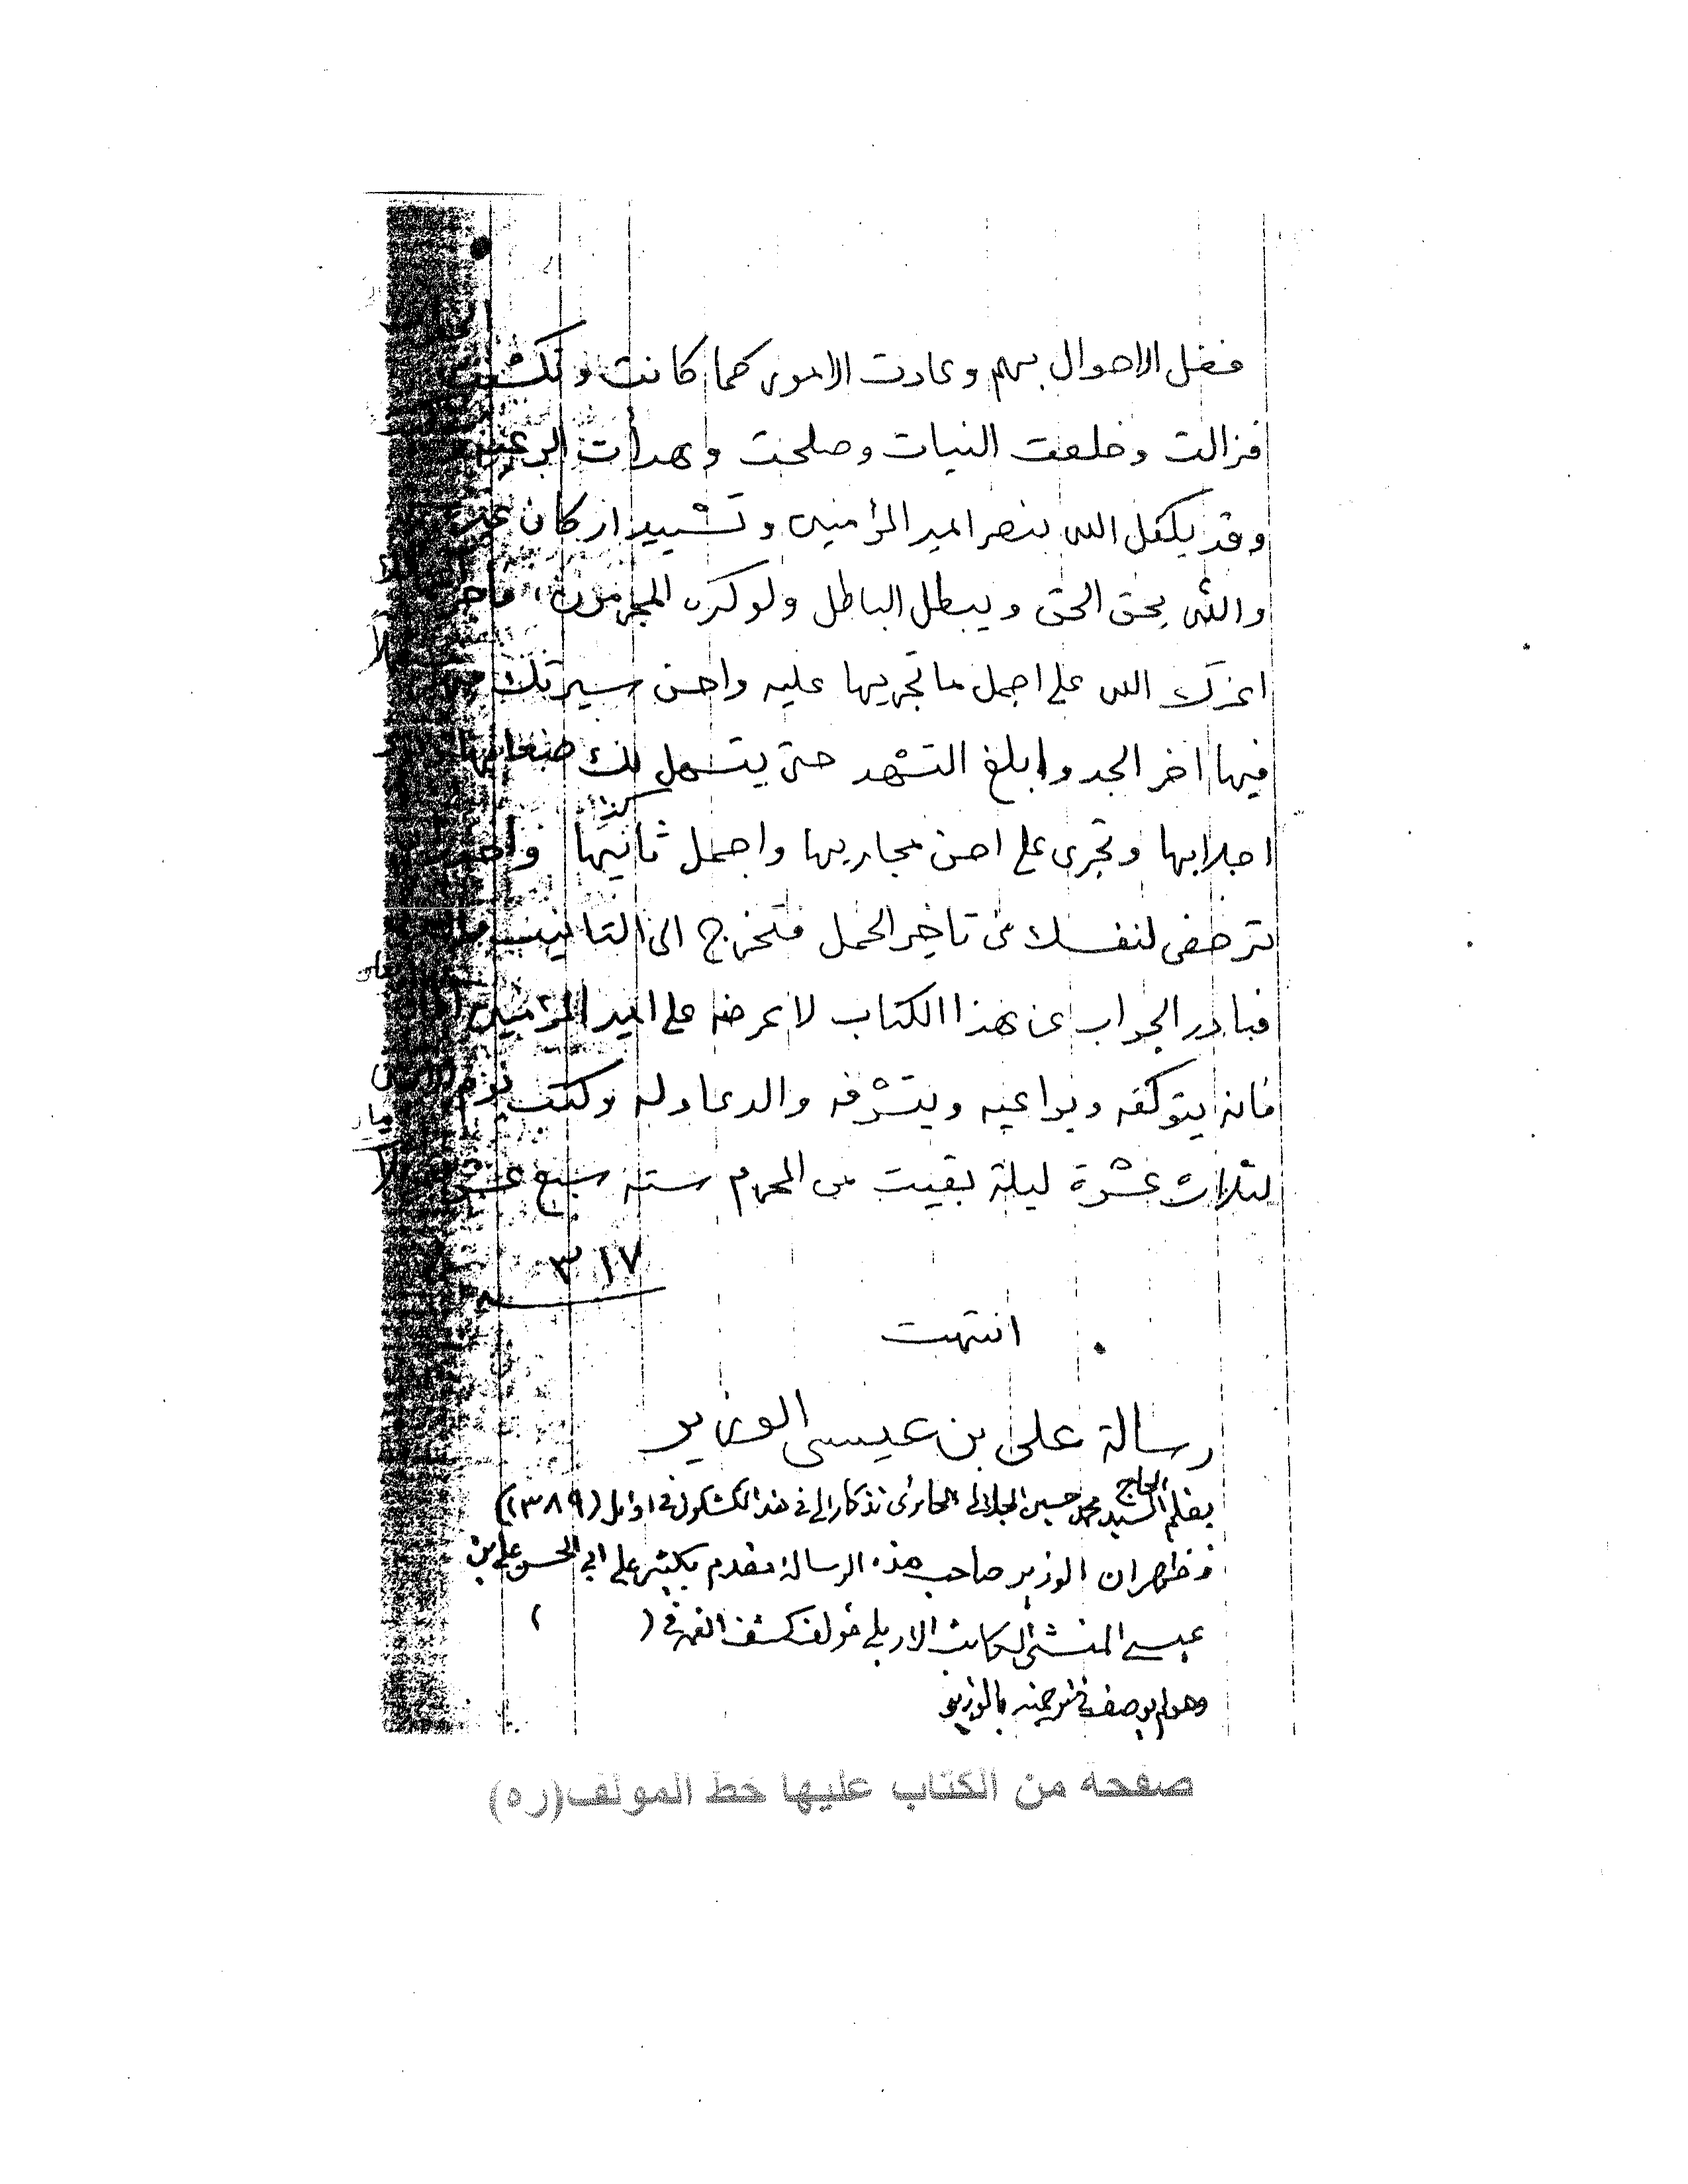 الاحوال بهم وعادت الامور كما كانت
فزالت وخلعت النيات وصلحت وهدأت
وقد يكفل الله بنصر امير المؤمنين وتشييد اركان
والله يحق الحق ويبطل الباطل ولو كره المجرمون،
اعزك الله على اجمل ما تجريها عليه واحسن سيرتك
فيها اخر الجد وابلغ التشهد حتى يتسهل لك
كذا
وتجرى على احسن مجاريها واجمل ثانيها
لنفسك في تاخير الحمل فتخرج الى
فبادر الجواب عن هذا الكتاب لاعرضه على امير المؤمنين
فانه يتوكفه ويراعيه ويتشرفه والدعاء له وكتب يوم
لثلاث عشرة ليلة بقيت من المحرم سنة سبع عشر
٣١٧
انتهت
رسالة على بن عيسى الوزير
الحاج
بقلم السيد محمد حسين الجلالي الحائرى تذكارا لي في هذا الكشكول في اوايل (١٣٨٩)
فظهر ان الوزير صاحب هذه الرسالة مقدم بكثير على ابي الحسن علي بن
عيسى المنشئ الكاتب الاربلي مؤلف كشف الغمة في ( )
وهو لم يوصف في ترجمته بالوزير
صفحة من الكتاب عليها خط المؤلف(ره)